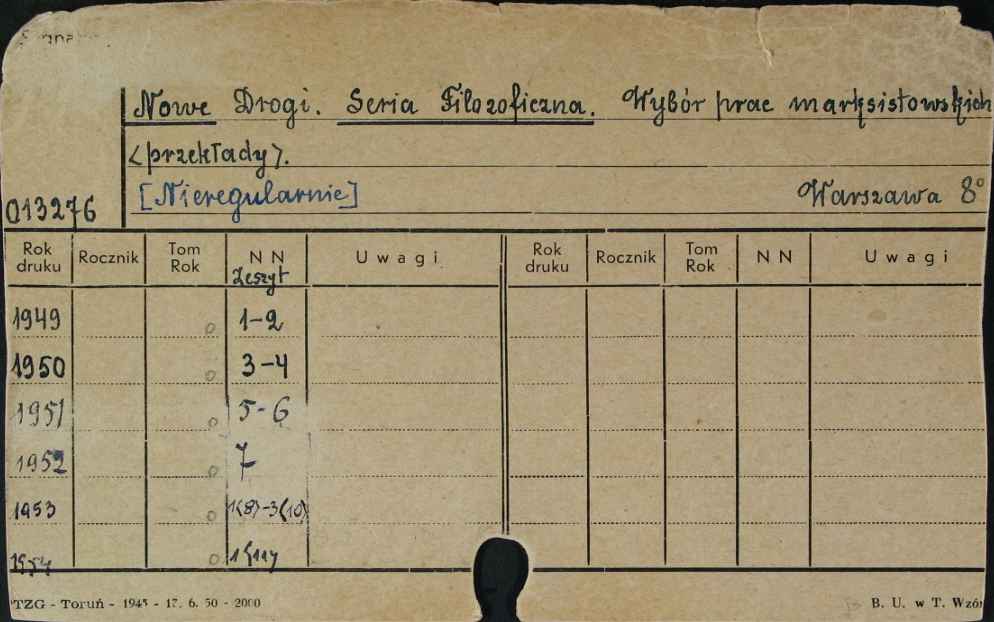 Nowe Drogi. Seria Filozoficzna. Wybór prac marksistowskich
<przekłady>.
[Nieregularnie] Warszawa 8°
013276
Rok druku Rocznik Tom Rok N N Zeszyt Uwagi Rok druku Rocznik Tom Rok N N Uwagi
1949 0 1-2
1950 0 3-4
1951 0 5-6
1952 0 7
1953 0 1<8>-3<10>
1954 0 1<11>
TZG - Toruń - 1945 - 17. 6. 50 - 2000 B. U. w T. Wzór